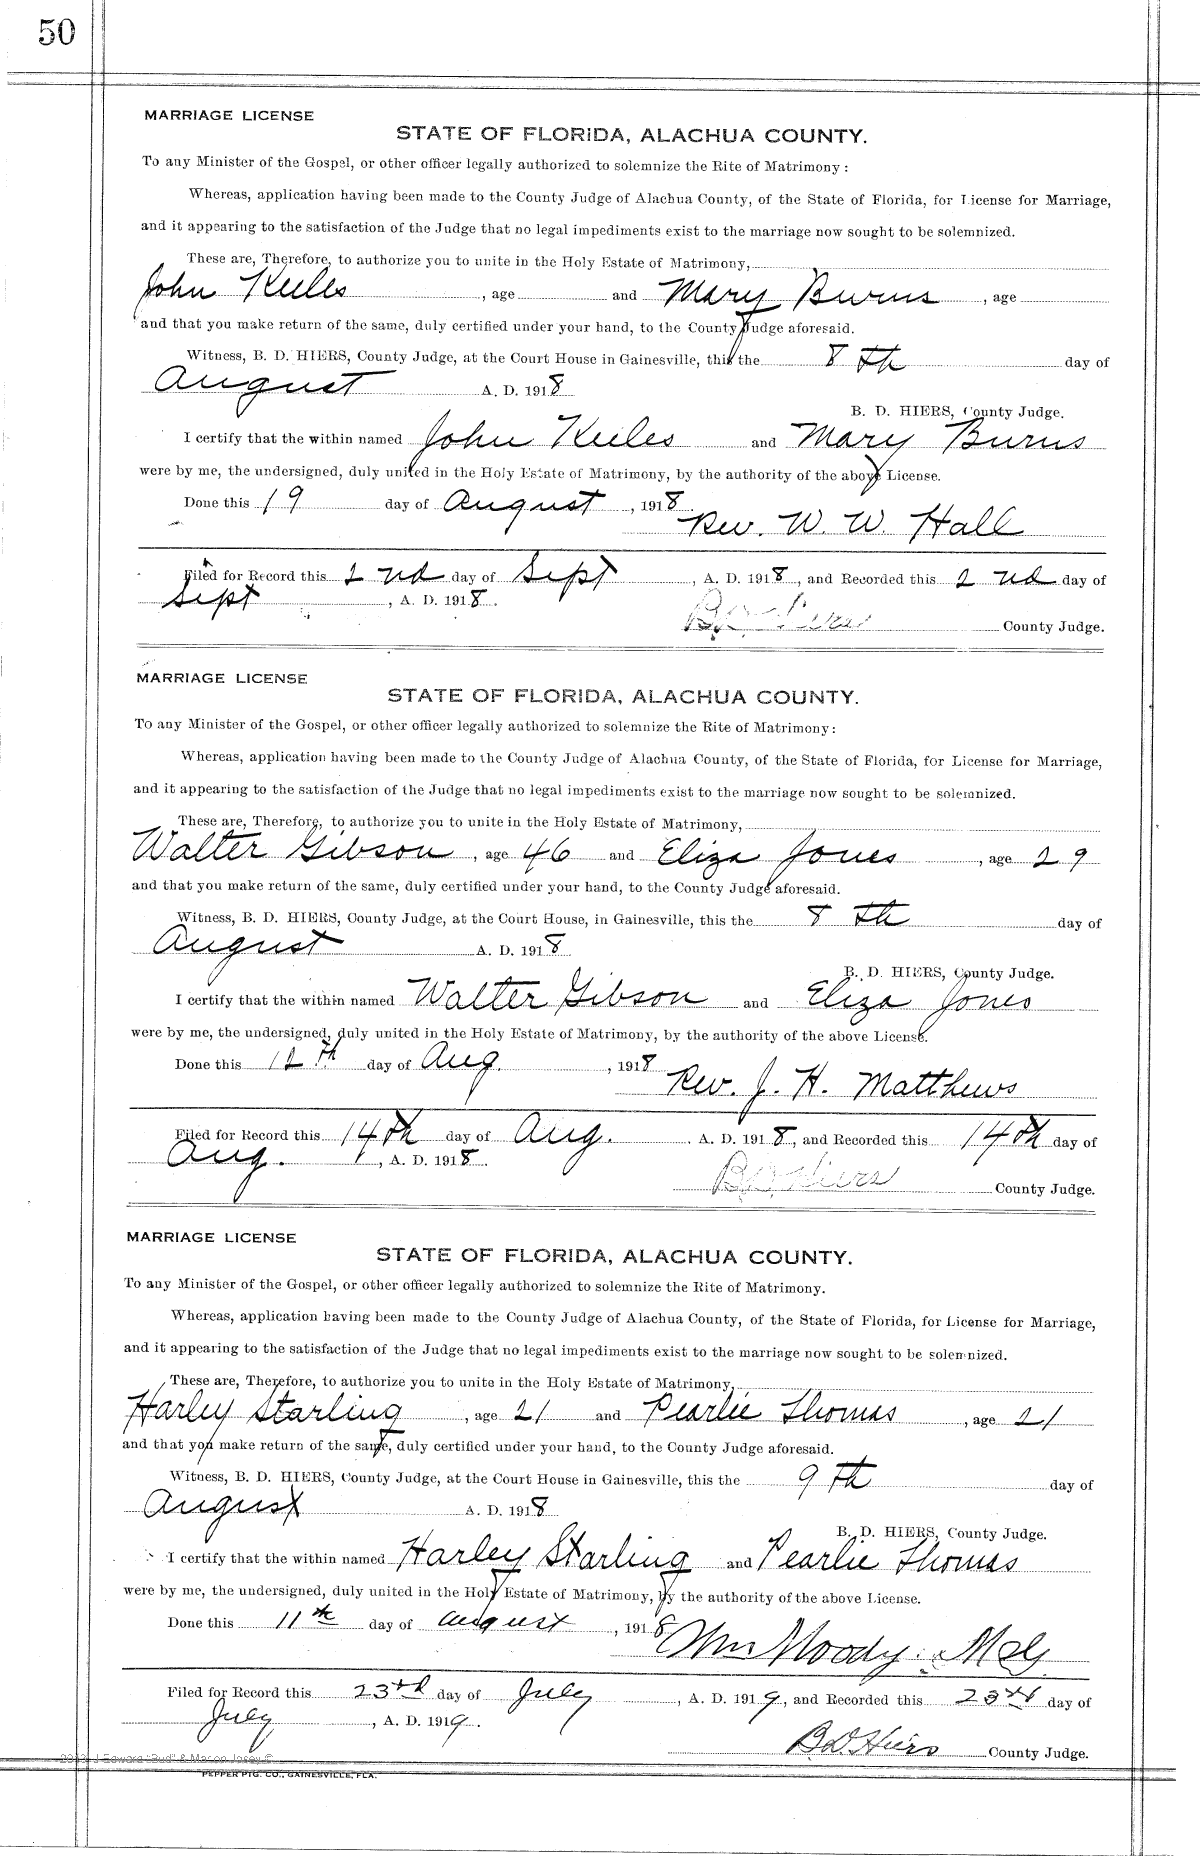 50
MARRIAGE LICENSE
STATE OF FLORIDA, ALACHUA COUNTY.
To any Minister of the Gospel, or other officer legally authorized to solemnize the Rite of Matrimony:
Whereas, application having been made to the County Judge of Alachua County, of the State of Florida, for License for Marriage,
and it appearing to the satisfaction of the Judge that no legal impediments exist to the marriage now sought to be solemnized.
These are, Therefore, to authorize you to unite in the Holy Estate of Matrimony,
John Keeles , age and Mary Burns , age
and that you make return of the same, duly certified under your hand, to the County Judge aforesaid.
Witness, B. D. HIERS, County Judge, at the Court House in Gainesville, this the 8th day of
August A. D. 1918
B. D. HIERS, County Judge.
I certify that the within named John Keeles and Mary Burns
were by me, the undersigned, duly united in the Holy Estate of Matrimony, by the authority of the above License.
Done this 19 day of August , 1918
Rev. W. W. Hall
Filed for Record this 2nd day of Sept , A. D. 1918 , and Recorded this 2nd day of
Sept , A. D. 1918 .
B D Hiers County Judge.
MARRIAGE LICENSE
STATE OF FLORIDA, ALACHUA COUNTY.
To any Minister of the Gospel, or other officer legally authorized to solemnize the Rite of Matrimony:
Whereas, application having been made to the County Judge of Alachua County, of the State of Florida, for License for Marriage,
and it appearing to the satisfaction of the Judge that no legal impediments exist to the marriage now sought to be solemnized.
These are, Therefore, to authorize you to unite in the Holy Estate of Matrimony,
Walter Gibson , age 46 and Eliza Jones , age 29
and that you make return of the same, duly certified under your hand, to the County Judge aforesaid.
Witness, B. D. HIERS, County Judge, at the Court House, in Gainesville, this the 8th day of
August A. D. 1918
B. D. HIERS, County Judge.
I certify that the within named Walter Gibson and Eliza Jones
were by me, the undersigned, duly united in the Holy Estate of Matrimony, by the authority of the above License.
Done this 12th day of Aug. , 1918
Rev. J. H. Matthews
Filed for Record this 14th day of Aug. A. D. 1918, and Recorded this 14th day of
Aug. , A. D. 1918 .
B D Hiers County Judge.
MARRIAGE LICENSE
STATE OF FLORIDA, ALACHUA COUNTY.
To any Minister of the Gospel, or other officer legally authorized to solemnize the Rite of Matrimony.
Whereas, application having been made to the County Judge of Alachua County, of the State of Florida, for License for Marriage,
and it appearing to the satisfaction of the Judge that no legal impediments exist to the marriage now sought to be solemnized.
These are, Therefore, to authorize you to unite in the Holy Estate of Matrimony,
Harley Starling , age 21 and Pearlie Thomas , age 21
and that you make return of the same, duly certified under your hand, to the County Judge aforesaid.
Witness, B. D. HIERS, County Judge, at the Court House in Gainesville, this the 9th day of
August A. D. 1918
B. D. HIERS, County Judge.
I certify that the within named Harley Starling and Pearlie Thomas
were by me, the undersigned, duly united in the Holy Estate of Matrimony, by the authority of the above License.
Done this 11th day of august , 1918
Wm Moody. M G
Filed for Record this 23rd day of July , A. D. 1919, and Recorded this 23rd day of
July , A. D. 1919.
B D Hiers County Judge.
PEPPER PTG. CO., GAINESVILLE, FLA.